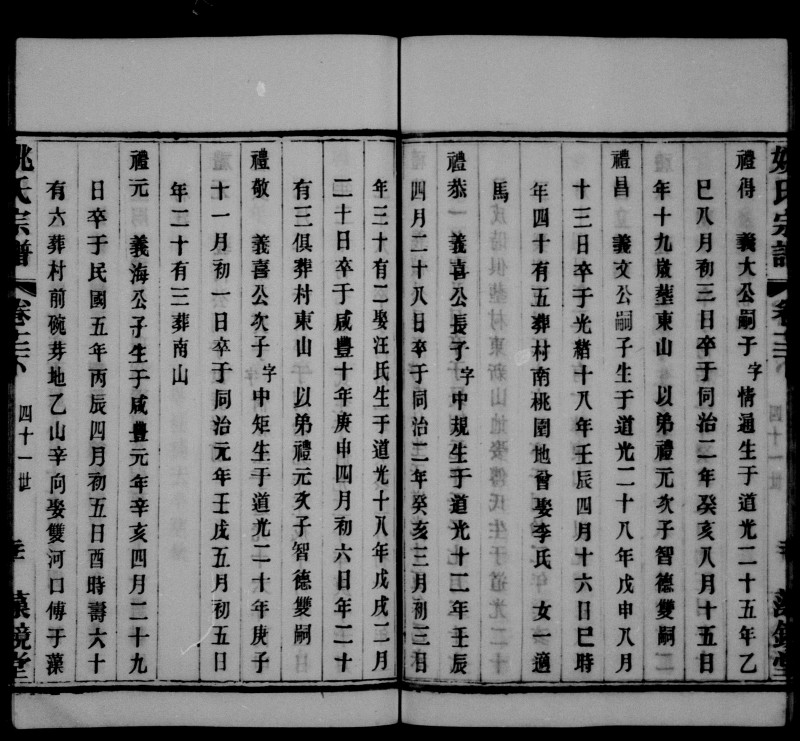 姚氏宗譜
卷三六
四十一世
藻鏡堂
禮得 義大公嗣子字情通生于道光二十五年乙
巳八月初三日卒于同治二年癸亥八月十五日
年十九歲塟東山 以弟禮元次子智德雙嗣
禮昌 義文公嗣子生于道光二十八年戊申八月
十三日卒于光緒十八年壬辰四月十六日巳時
年四十有五葬村南桃園地曾娶李氏 女一適
馬
禮恭 義喜公長子字中規生于道光十二年壬辰
四月二十八日卒于同治二年癸亥三月初三日
年三十有二娶汪氏生于道光十八年戊戌二月
二十日卒于咸豐十年庚申四月初六日年二十
有三俱葬村東山 以弟禮元次子智德雙嗣
禮敬 義喜公次子字中矩生于道光二十年庚子
十一月初一日卒于同治元年壬戌五月初五日
年二十有三葬南山
禮元 義海公子生于咸豐元年辛亥四月二十九
日卒于民國五年丙辰四月初五日酉時壽六十
有六葬村前碗芽地乙山辛向娶雙河口傅于藻
姚氏宗譜
四十一世
藻鏡堂